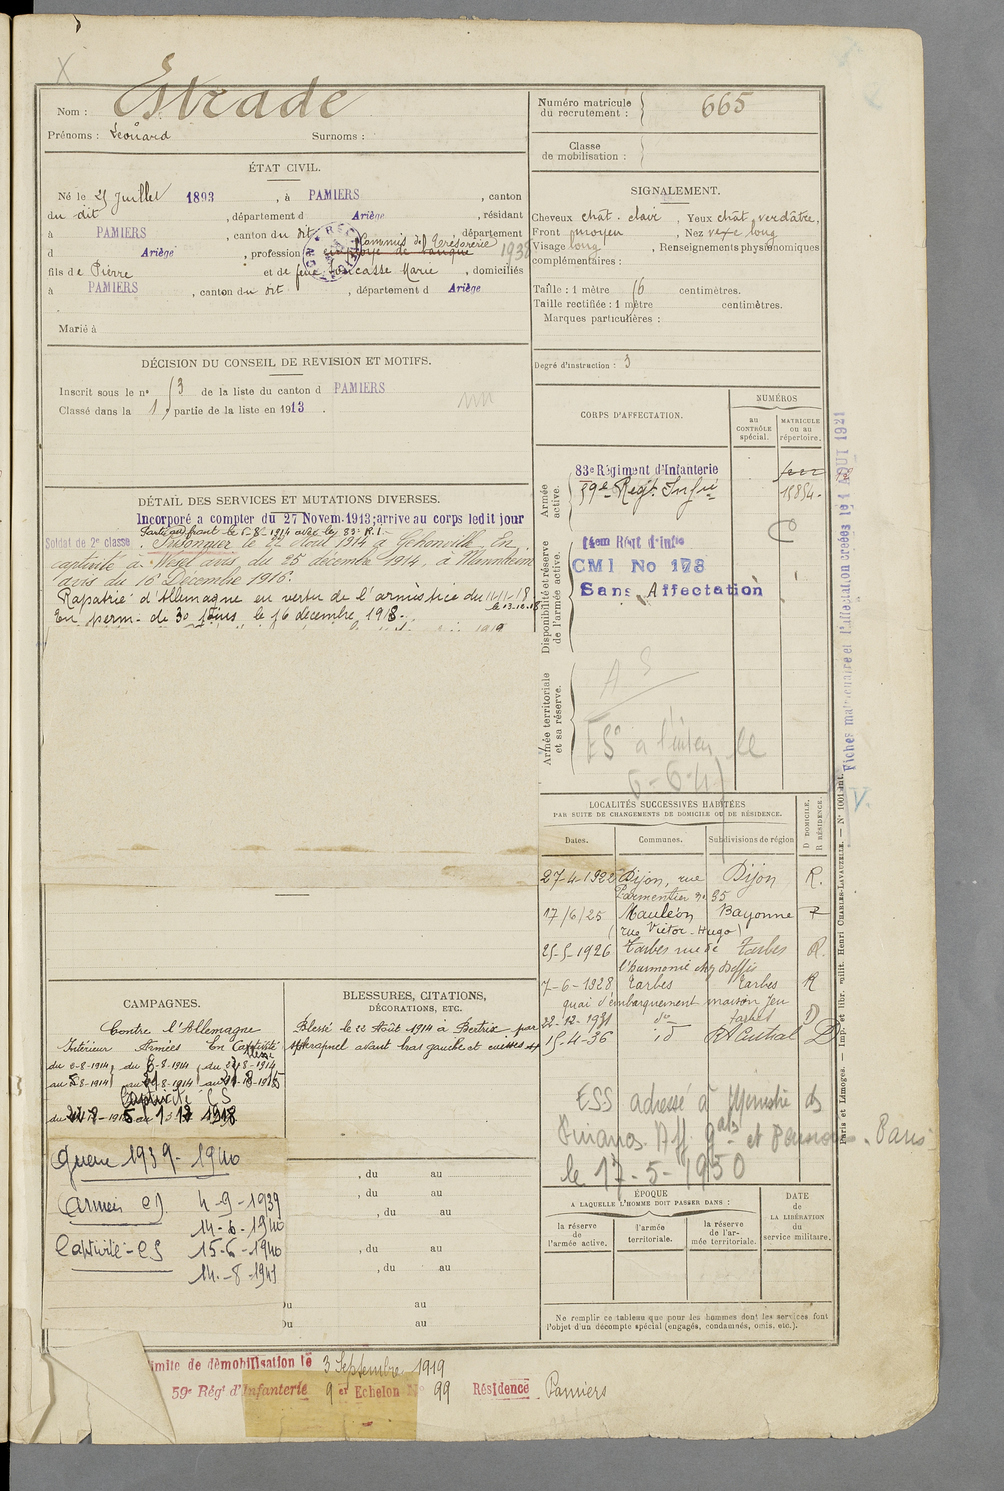 Nom : Estrade
Prénoms : Léonard Surnoms :
Numéro matricule du recrutement : 665
Classe de mobilisation :
ÉTAT CIVIL.
Né le 25 Juillet 1893, à PAMIERS, canton
du dit, département d Ariège, résidant
à PAMIERS, canton du dit, département
Commis de Trésorerie
d Ariège, profession employé de banque 1938
fils de Pierre et de feue Marie, domiciliés
à PAMIERS, canton du dit, département d Ariège
Marié à
SIGNALEMENT.
Cheveux chât. clair, Yeux chât. verdâtre,
Front moyen, Nez long
Visage long, Renseignements physionomiques
complémentaires :
Taille : 1 mètre 6 centimètres.
Taille rectifiée : 1 mètre centimètres.
Marques particulières :
Degré d'instruction : 3
DÉCISION DU CONSEIL DE REVISION ET MOTIFS.
Inscrit sous le n° 13 de la liste du canton d PAMIERS
Classé dans la 1 partie de la liste en 1913.
DÉTAIL DES SERVICES ET MUTATIONS DIVERSES.
Incorporé a compter du 27 Novem. 1913; arrive au corps ledit jour
Parti au front le 5-8-1914 avec le 83e R.I.
Soldat de 2e classe. Prisonnier le 22 Août 1914 à En
captivité à Wesel avis du 25 décembre 1914, à Mannheim
avis du 16 Décembre 1916.
Rapatrié d'Allemagne en vertu de l'armistice du 11-11-18
le 13.12.18
En perm. de 30 jours, le 16 décembre 1918.
CORPS D'AFFECTATION.
NUMÉROS
au CONTRÔLE spécial.
MATRICULE ou au répertoire.
Armée active.
83e Régiment d'Infanterie
59e Regt Infie 15854
Disponibilité et réserve de l'armée active.
14em Régt d'Infie
CMI No 178
Sans Affectation
Armée territoriale et sa réserve.
ES
Fiches matriculaire et l'affectation créées le 1 AOUT 1921
LOCALITÉS SUCCESSIVES HABITÉES
PAR SUITE DE CHANGEMENTS DE DOMICILE OU DE RÉSIDENCE.
D DOMICILE. R RÉSIDENCE.
Dates. Communes. Subdivisions de région
27-4-1922 Dijon, rue Dijon R.
Parmentier n° 35
17/6/25 Mauléon Bayonne R
(rue Victor-Hugo)
25-5-1926 Tarbes rue de Tarbes R.
l'harmonie chez
7-6-1928 Tarbes Tarbes R
quai d'embarquement maison
22-12-1931 do Tarbes D
15-4-36 id D
ESS adressé à Ministre des
Finances. Aff. Gales et Pensions - Paris
le 17-5-1950
CAMPAGNES.
Contre l'Allemagne
Intérieur Armées En Captivité
Captivité CS
Guerre 1939-1940
Armées CD 4-9-1939
14-6-1940
Captivité - CS 15-6-1940
14-8-1941
BLESSURES, CITATIONS,
DÉCORATIONS, ETC.
Blessé le 22 Août 1914 à Bertrix par
shrapnel avant bras gauche et cuisses
, du au
, du au
, du au
, du au
, du au
Du au
Du au
ÉPOQUE
A LAQUELLE L'HOMME DOIT PASSER DANS :
la réserve de l'armée active.
l'armée territoriale.
la réserve de l'armée territoriale.
DATE de LA LIBÉRATION du service militaire.
Ne remplir ce tableau que pour les hommes dont les services font
l'objet d'un décompte spécial (engagés, condamnés, omis, etc.).
Paris et Limoges. — Imp. et libr. milit. Henri CHARLES-LAVAUZELLE. — N° 1001 int.
limite de démobilisation le 3 Septembre 1919
59e Rég' d'Infanterie 9 er Echelon N° 99 Résidence Pamiers